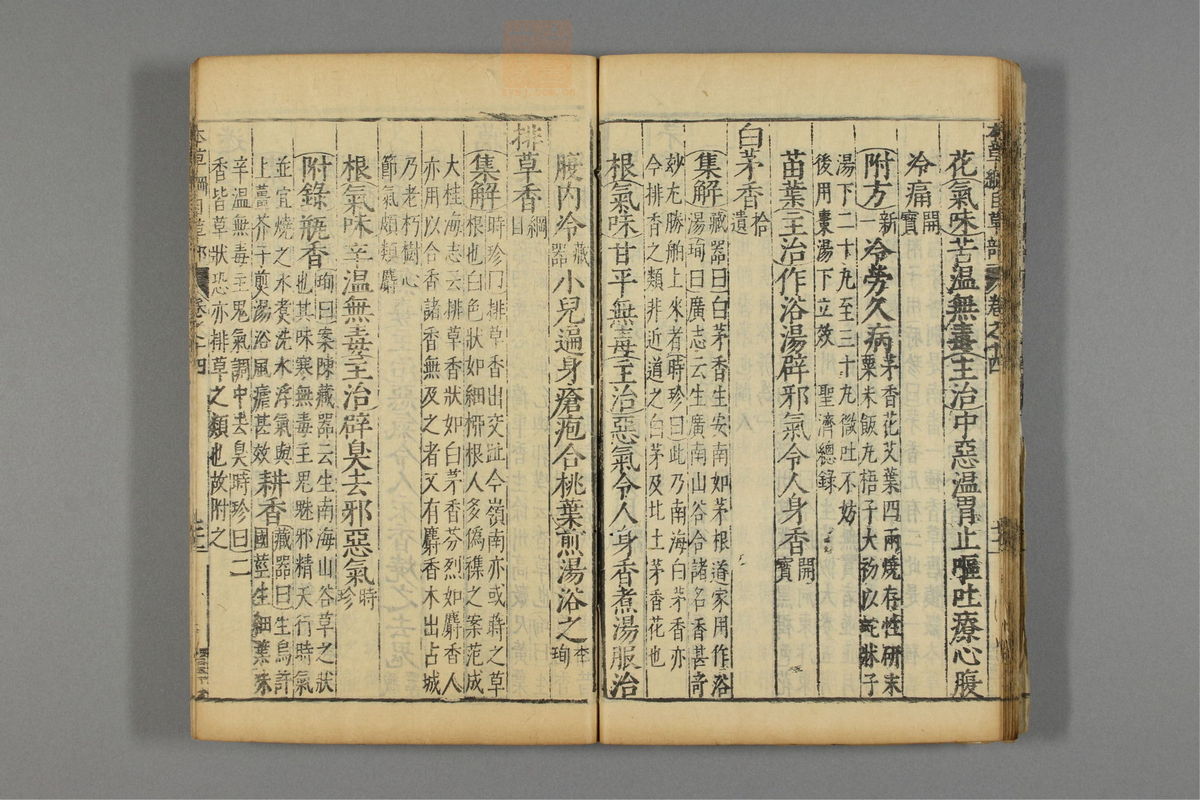 本草綱目草部 卷之十四
花氣味苦溫無毒主治中惡溫胃止嘔吐療心腹
冷痛開寶
附方新
冷勞久病茅香花艾葉四兩燒存性研末
粟米飯丸梧子大初以蛇牀子
湯下二十丸至三十丸微吐不妨
後用棗湯下立效 聖濟總錄
苗葉主治作浴湯辟邪氣令人身香開寶
白茅香拾遺
集解藏器曰白茅香生安南如茅根道家用作浴
湯珣曰廣志云生廣南山谷合諸名香甚奇
妙尤勝舶上來者時珍曰此乃南海白茅香亦
今排香之類非近道之白茅及北土茅香花也
根氣味甘平無毒主治惡氣令人身香煮湯服治
腹內冷藏器小兒遍身瘡疱合桃葉煎湯浴之李珣
排草香綱目
集解時珍曰排草香出交趾今嶺南亦或蒔之草
根也白色狀如細柳根人多偽雜之案范成
大桂海志云排草香狀如白茅香芬烈如麝香人
亦用以合香諸香無及之者又有麝香木出占城
乃老朽樹心
節氣頗類麝
根氣味辛溫無毒主治辟臭去邪惡氣時珍
附錄瓶香珣曰案陳藏器云生南海山谷草之狀
也其味寒無毒主鬼魅邪精天行時氣
並宜燒之水煮洗水浮氣與
上薑芥子煎湯浴風瘧甚效
耕香藏器曰生烏許
國莖生細葉味
辛溫無毒主鬼氣調中去臭時珍曰二
香皆草狀恐亦排草之類也故附之
本草綱目草部 卷之十四